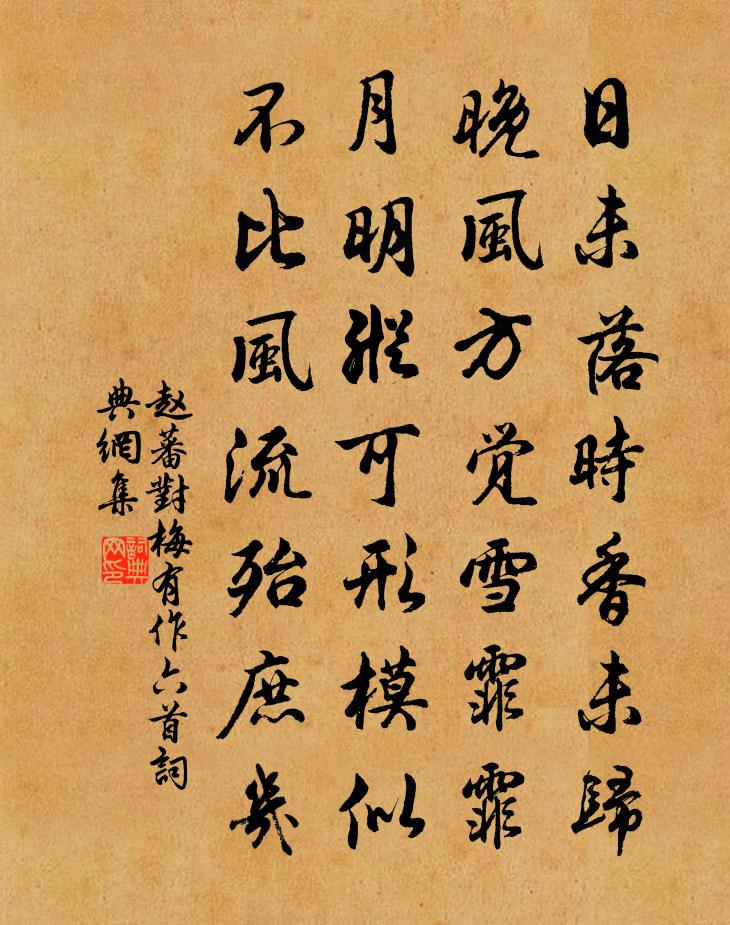 日未落時香未歸
晚風方覚雪霏霏
月明縱可形模似
不比風流殆庶幾
赵蕃對梅有作六首詞
典網集
詞典
网印